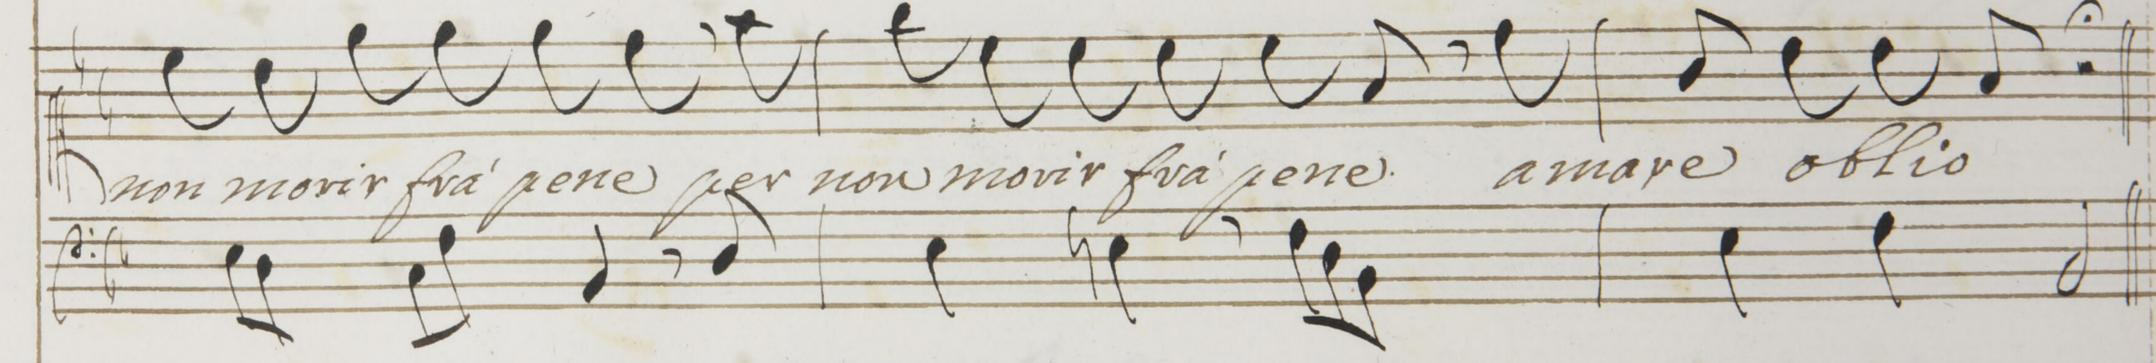 non morir frà pene per non morir frà pene. amare oblio